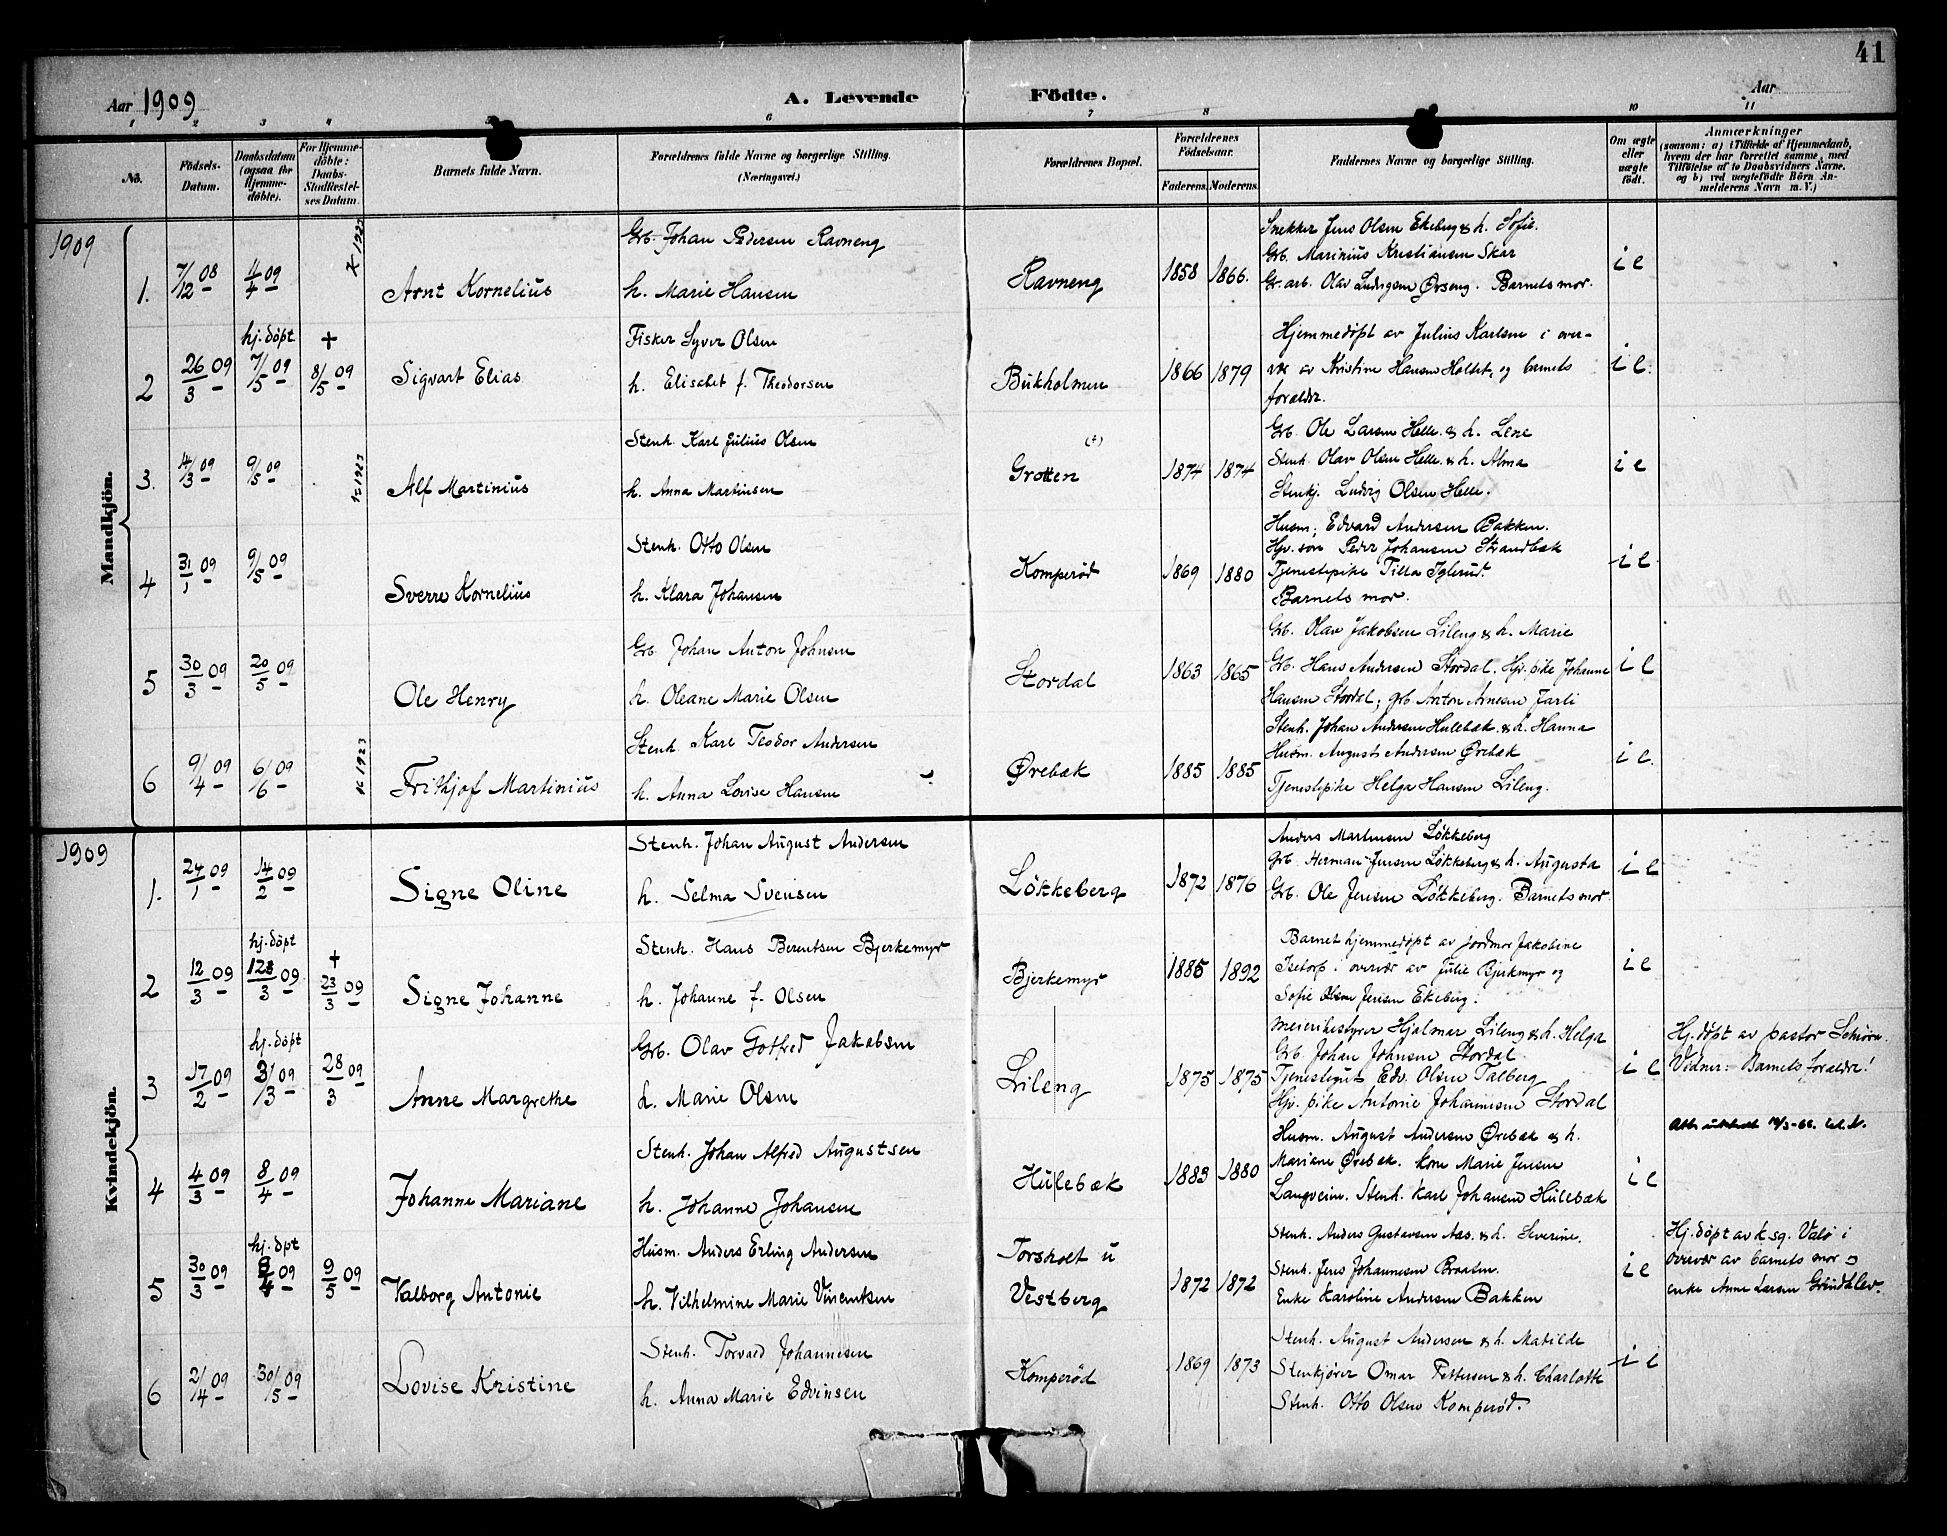 41
Aar 1909
A. Levende Födte.
Aar
1 2 3 4 6 7 8 10 11
No.
Födsels-Datum.
Daabsdatum (ogsaa for Hjemme-døbte).
For Hjemme-döbte: Daabs-Stadfæstel-ses Datum.
Barnets fulde Navn.
Forældrenes fulde Navne og borgerlige Stilling. (Næringsvei.)
Forældrenes Bopæl.
Forældrenes Födselsaar.
Faderens. Moderens.
Faddernes Navne og borgerlige Stilling.
Om ægte eller uægte födt.
Anmærkninger (saasom: a) i Tilfælde af Hjemmedaab, hvem der har forrettet samme, med Tilföielse af to Daabsvidners Navne. og b) ved uægtefödte Börn An-melderens Navn m. V.)
Mandkjön.
1909
1. 7/12 08 4/4 09 1923
Arnt Kornelius
Grb. Johan Pedersen Ravneng
h. Marie Hansen
Ravneng 1858 1866.
Snekker Jens Olsen Ekeberg & h. Sofie.
Grb. Marinius Kristiansen Skar
Gr. arb. Olav Ludvigsen Ørseng. Barnets mor.
i e
2 26/3 09 hj. döpt 7/5 09 + 8/5 09
Sigvart Elias
Fisker Syver Olsen
h. Elisabet f. Theodorsen
Bukholmen 1866 1879
Hjemmedøpt av Julius Karlsen i over-
vær av Kristine Hansen Holtet, og barnets
forældr.
i e.
3. 14/3 09 9/5 09 1923
Alf Martinius
Stenh. Karl Julius Olsen
h. Anna Martinsen
Grotten 1874 1874
Grb. Ole Larsen Helle. & h. Lene
Stenh. Olav Olsen Helle & h. Alma
Stenkj. Ludvig Olsen Helle.
i e
4 31/1 09 9/5 09
Sverre Kornelius
Stenh. Otto Olsen
h. Klara Johansen
Komperød 1869 1880
Husm. Edvard Andersen Bakken.
Hjv. søn Peder Johansen Strandbæk
Tjenestepike Tilla Iglerud.
Barnets mor.
i e
5 30/3 09 20/5 09
Ole Henry
Grb. Johan Anton Johnsen
h. Oleane Marie Olsen
Stordal 1863 1865
Grb. Olav Jakobsen Lileng & h. Marie
Grb. Hans Andersen Stordal. Hjv. pike Johanne
Hansen Stordal, grb. Anton Arnesen Jarli
i e
6 9/4 09 6/6 09 1923
Frithjof Martinius
Stenh. Karl Teodor Andersen
h. Anna Lovise Hansen
Ørebæk 1885 1885
Stenh. Johan Andersen Hulebæk & h. Hanna
Husm. August Andersen Ørebæk
Tjenestepike Helga Hansen Lileng.
i e.
Kvindekjön.
1909
1. 24/1 09 14/2 09
Signe Oline
Stenh. Johan August Andersen
h. Selma Svensen
Løkkeberg 1872 1876
Anders Martinsen Løkkeberg
Grb. Herman Jensen Løkkeberg & h. Augusta
Grb. Ole Jensen Løkkeberg. Barnets mor.
i e
2 12/3 09 hj. döpt 12/3 09 + 23/3 09
Signe Johanne
Stenh. Hans Berentsen Bjerkemyr
h. Johanne f. Olsen
Bjerkemyr 1885 1892
Barnet hjemmedøpt av jordmor Jakobine
Isetorp i overvær av Julie Bjerkmyr og
Sofie Olsen Jensen Ekeberg.
i e
3 17/2 09 hj. döpt 3/3 09 28/3 09
Anne Margrethe
Grb. Olav Gotfred Jakobsen
h. Marie Olsen
Lileng 1875 1875
Meieribestyrer Hjalmar Lileng & h. Helga
Grb. Johan Johnsen Stordal
Tjenestegut Edv. Olsen Talberg
Hjv. pike Antonie Johannesen Stordal
i e
Hj. døpt av pastor Schiørn.
Vidner: Barnets forældre!
4 4/3 09 8/4 09
Johanne Mariane
Stenh. Johan Alfred Augustsen
h. Johanne Johansen
Hulebæk 1883 1880
Husm. August Andersen Ørebæk & h.
Mariane Ørebæk. Kone Marie Jensen
Langveim. Stenh. Karl Johansen Hulebæk
i e
5 30/3 09 hj. dpt 9/4 09 9/5 09
Valborg Antonie
Husm. Anders Erling Andersen
h. Vilhelmine Marie Vincentsen
Torsholt u
Vestberg 1872 1872
Stenh. Anders Gustavsen Aas. & h. Severine.
Stenh. Jens Johannesen Braaten.
Enke Karoline Andersen Bakken
i e
Hj. døpt av k sg. Valø i
overvær av barnets mor og
enke Anne Larsen Grindklev.
6 2/4 09 30/5 09
Lovise Kristine
Stenh. Torvald Johannesen
h. Anna Marie Edvinsen
Komperød 1869 1873
Stenh. August Andersen & h. Matilde
Stenkjører Omar Pettersen & h. Charlotte
Stenh. Otto Olsen Komperød.
i e